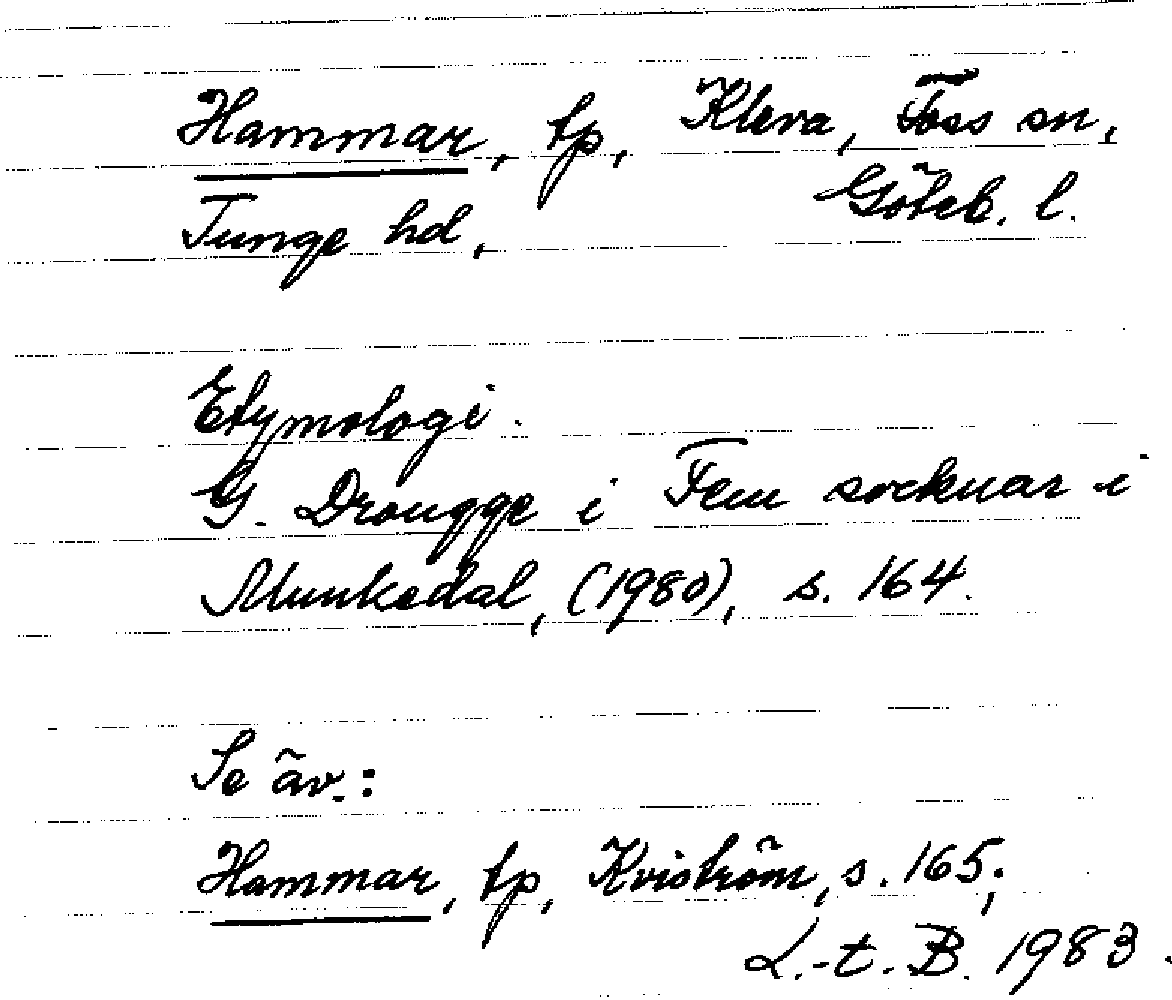 Hammar, tp, Kleva, Foss sn,
Tunge hd, Göteb. l.
Etymologi.
G. Drougge i Fem socknar i
Munkedal, (1980), s. 164.
Se äv.:
Hammar, tp, Kviström, s. 165;
L.-t. B. 1983.